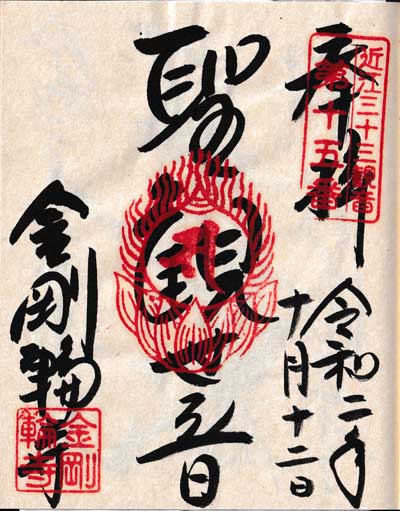 奉拝
近江三十三観音
第十五番
令和二年
十月十二日
聖観世音
金剛輪寺
金剛
輪寺